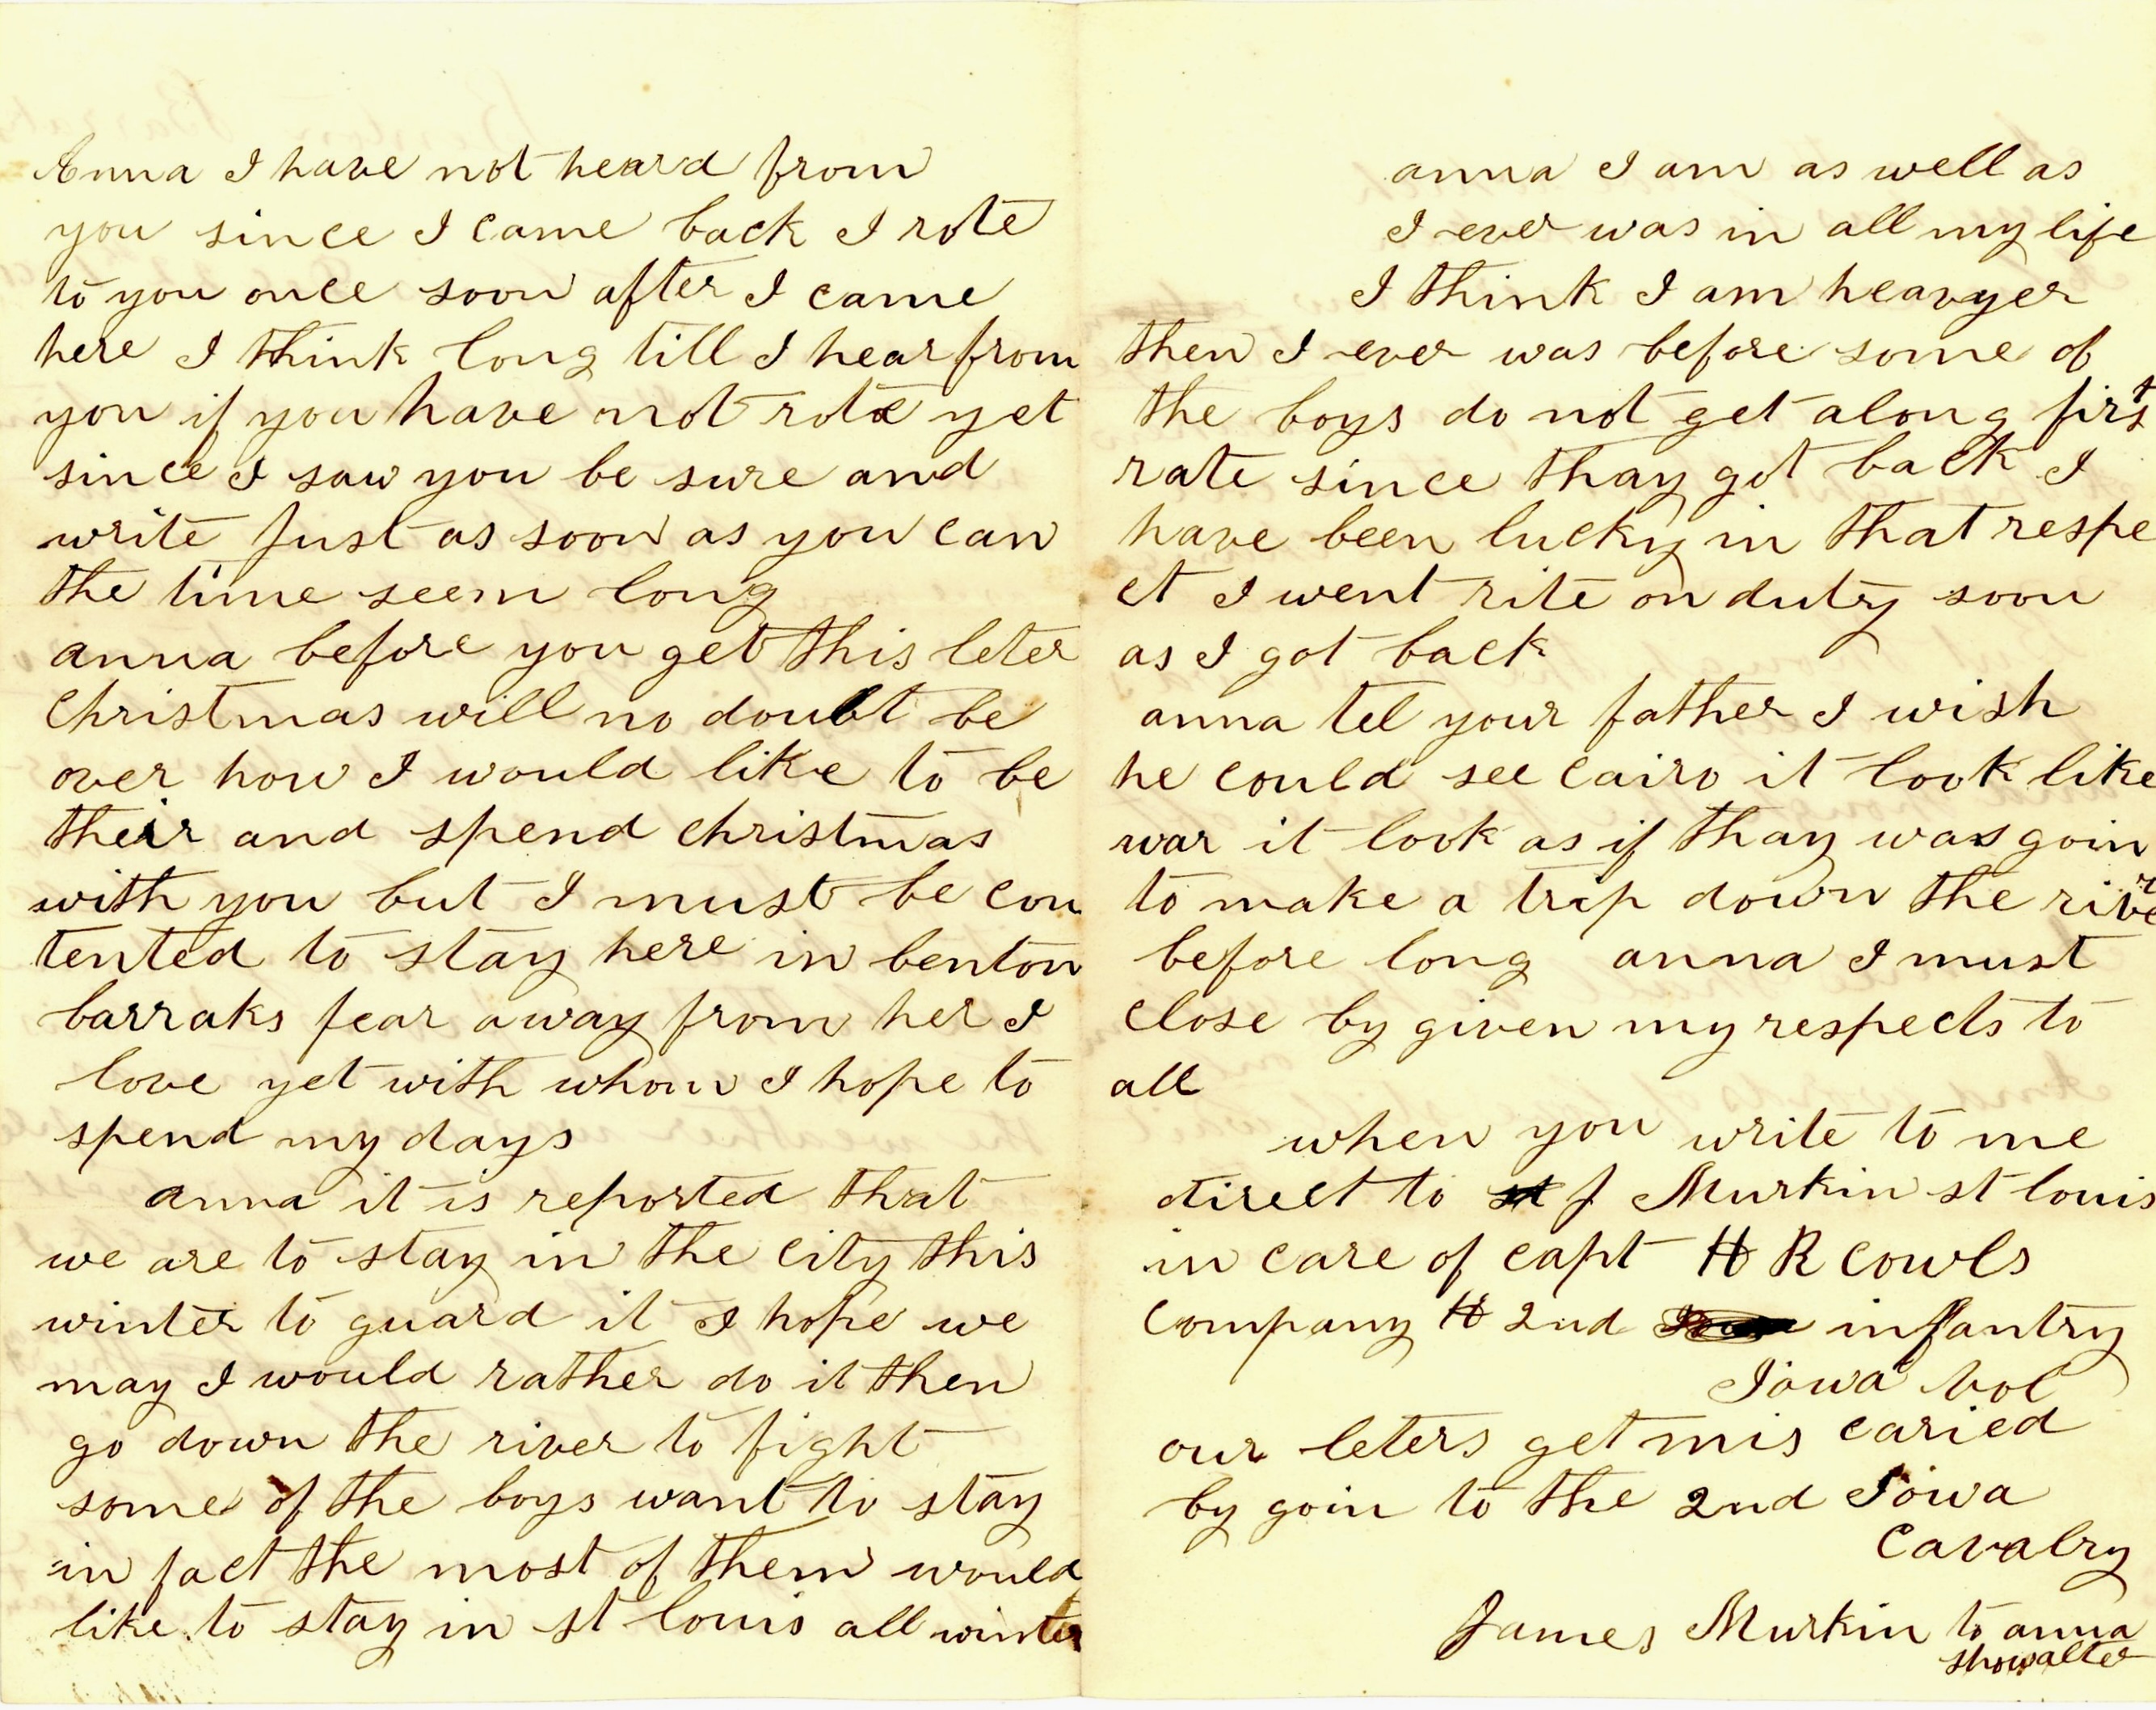 Anna I have not heard from
you since I came back I rote
to you once soon after I came
here I think long till I hear from
you if you have not rote yet
since I saw you be sure and
write Just as soon as you can
the time seem long
anna before you get this leter
christmas will no doubt be
over how I would like to be
their and spend christmas
with you but I must be con
tented to stay here in benton
barraks fear away from her I
love yet with whom I hope to
spend my days
anna it is reported that
we are to stay in the city this
winter to guard it I hope we
may I would rather do it then
go down the river to fight
some of the boys want to stay
in fact the most of them would
like to stay in st louis all winter
anna I am as well as
I ever was in all my life
I think I am heavyer
then I ever was before some of
the boys do not get along first
rate since thay got back I
have been lucky in that respe
ct I went rite on duty soon
as I got back
anna tel your father I wish
he could see cairo it look like
war it look as if thay was goin
to make a trip down the river
before long anna I must
close by given my respects to
all
when you write to me
direct to st J Murkin st louis
in care of capt H R cowls
company H 2nd infantry
Iowa vol
our leters get mis caried
by goin to the 2nd Iowa
Cavalry
James Murkin to anna
showalter